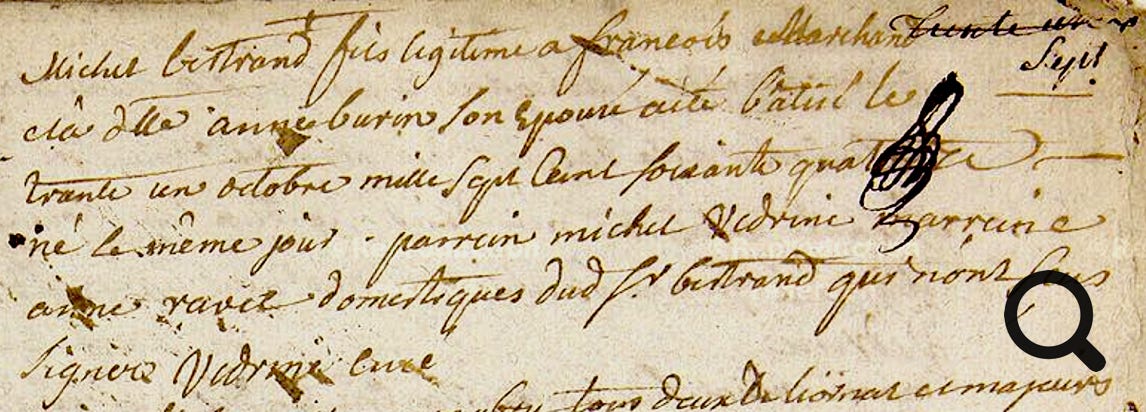 Michel bertrand fils legitime a francois Marchand trente un
Sept
et a dlle anne burin son Epouse a été batisé le
trante un octobre mille sept Cent soixante quatorze
né le même jour - parrein michel Vedrine marreine
anne ravel domestiques dud Sr bertrand qui n'ont sçus
signer Vedrine Curé
tous deux de et majeurs